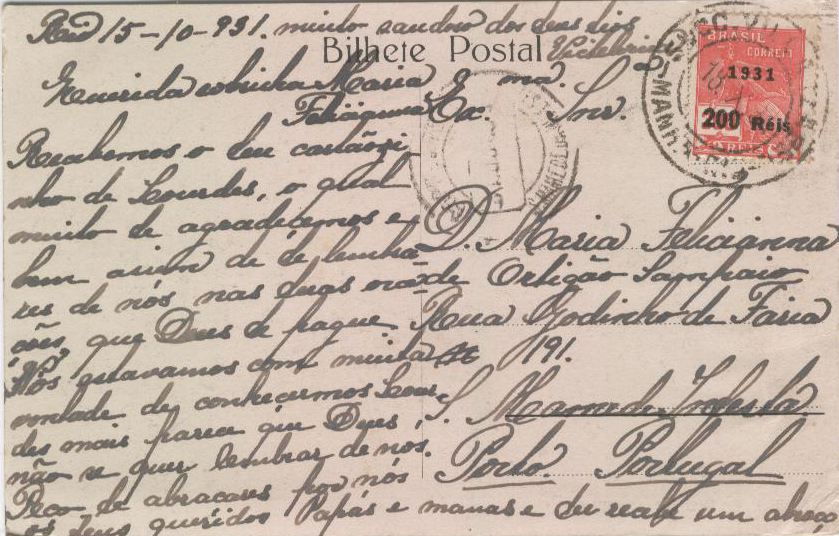 Rio 15-10-931. muito saudoso dos teus tios
Bilhete Postal
Querida sobrinha Maria
Felicianna
Recebemos o teu cartãozi
nho de Lourdes, o qual
muito te agradecemos e
bem assim de te lembra
res de nós nas tuas ora
ções, que Deus te pague.
Nós estavamos com muita
vontade de conhecermos Lour
des mais parece que Deus,
não se quer lembrar de nós.
Peço te abraçares por nós
os teus queridos Papás e manas e tu recebe um abraço
Exma. Snr.
D. Maria Felicianna
de Ortigão Sampaio
Rua Godinho de Faria
191.
S. Mamede Infesta
Porto. Portugal
BRASIL
CORREIO
1931
200 Réis